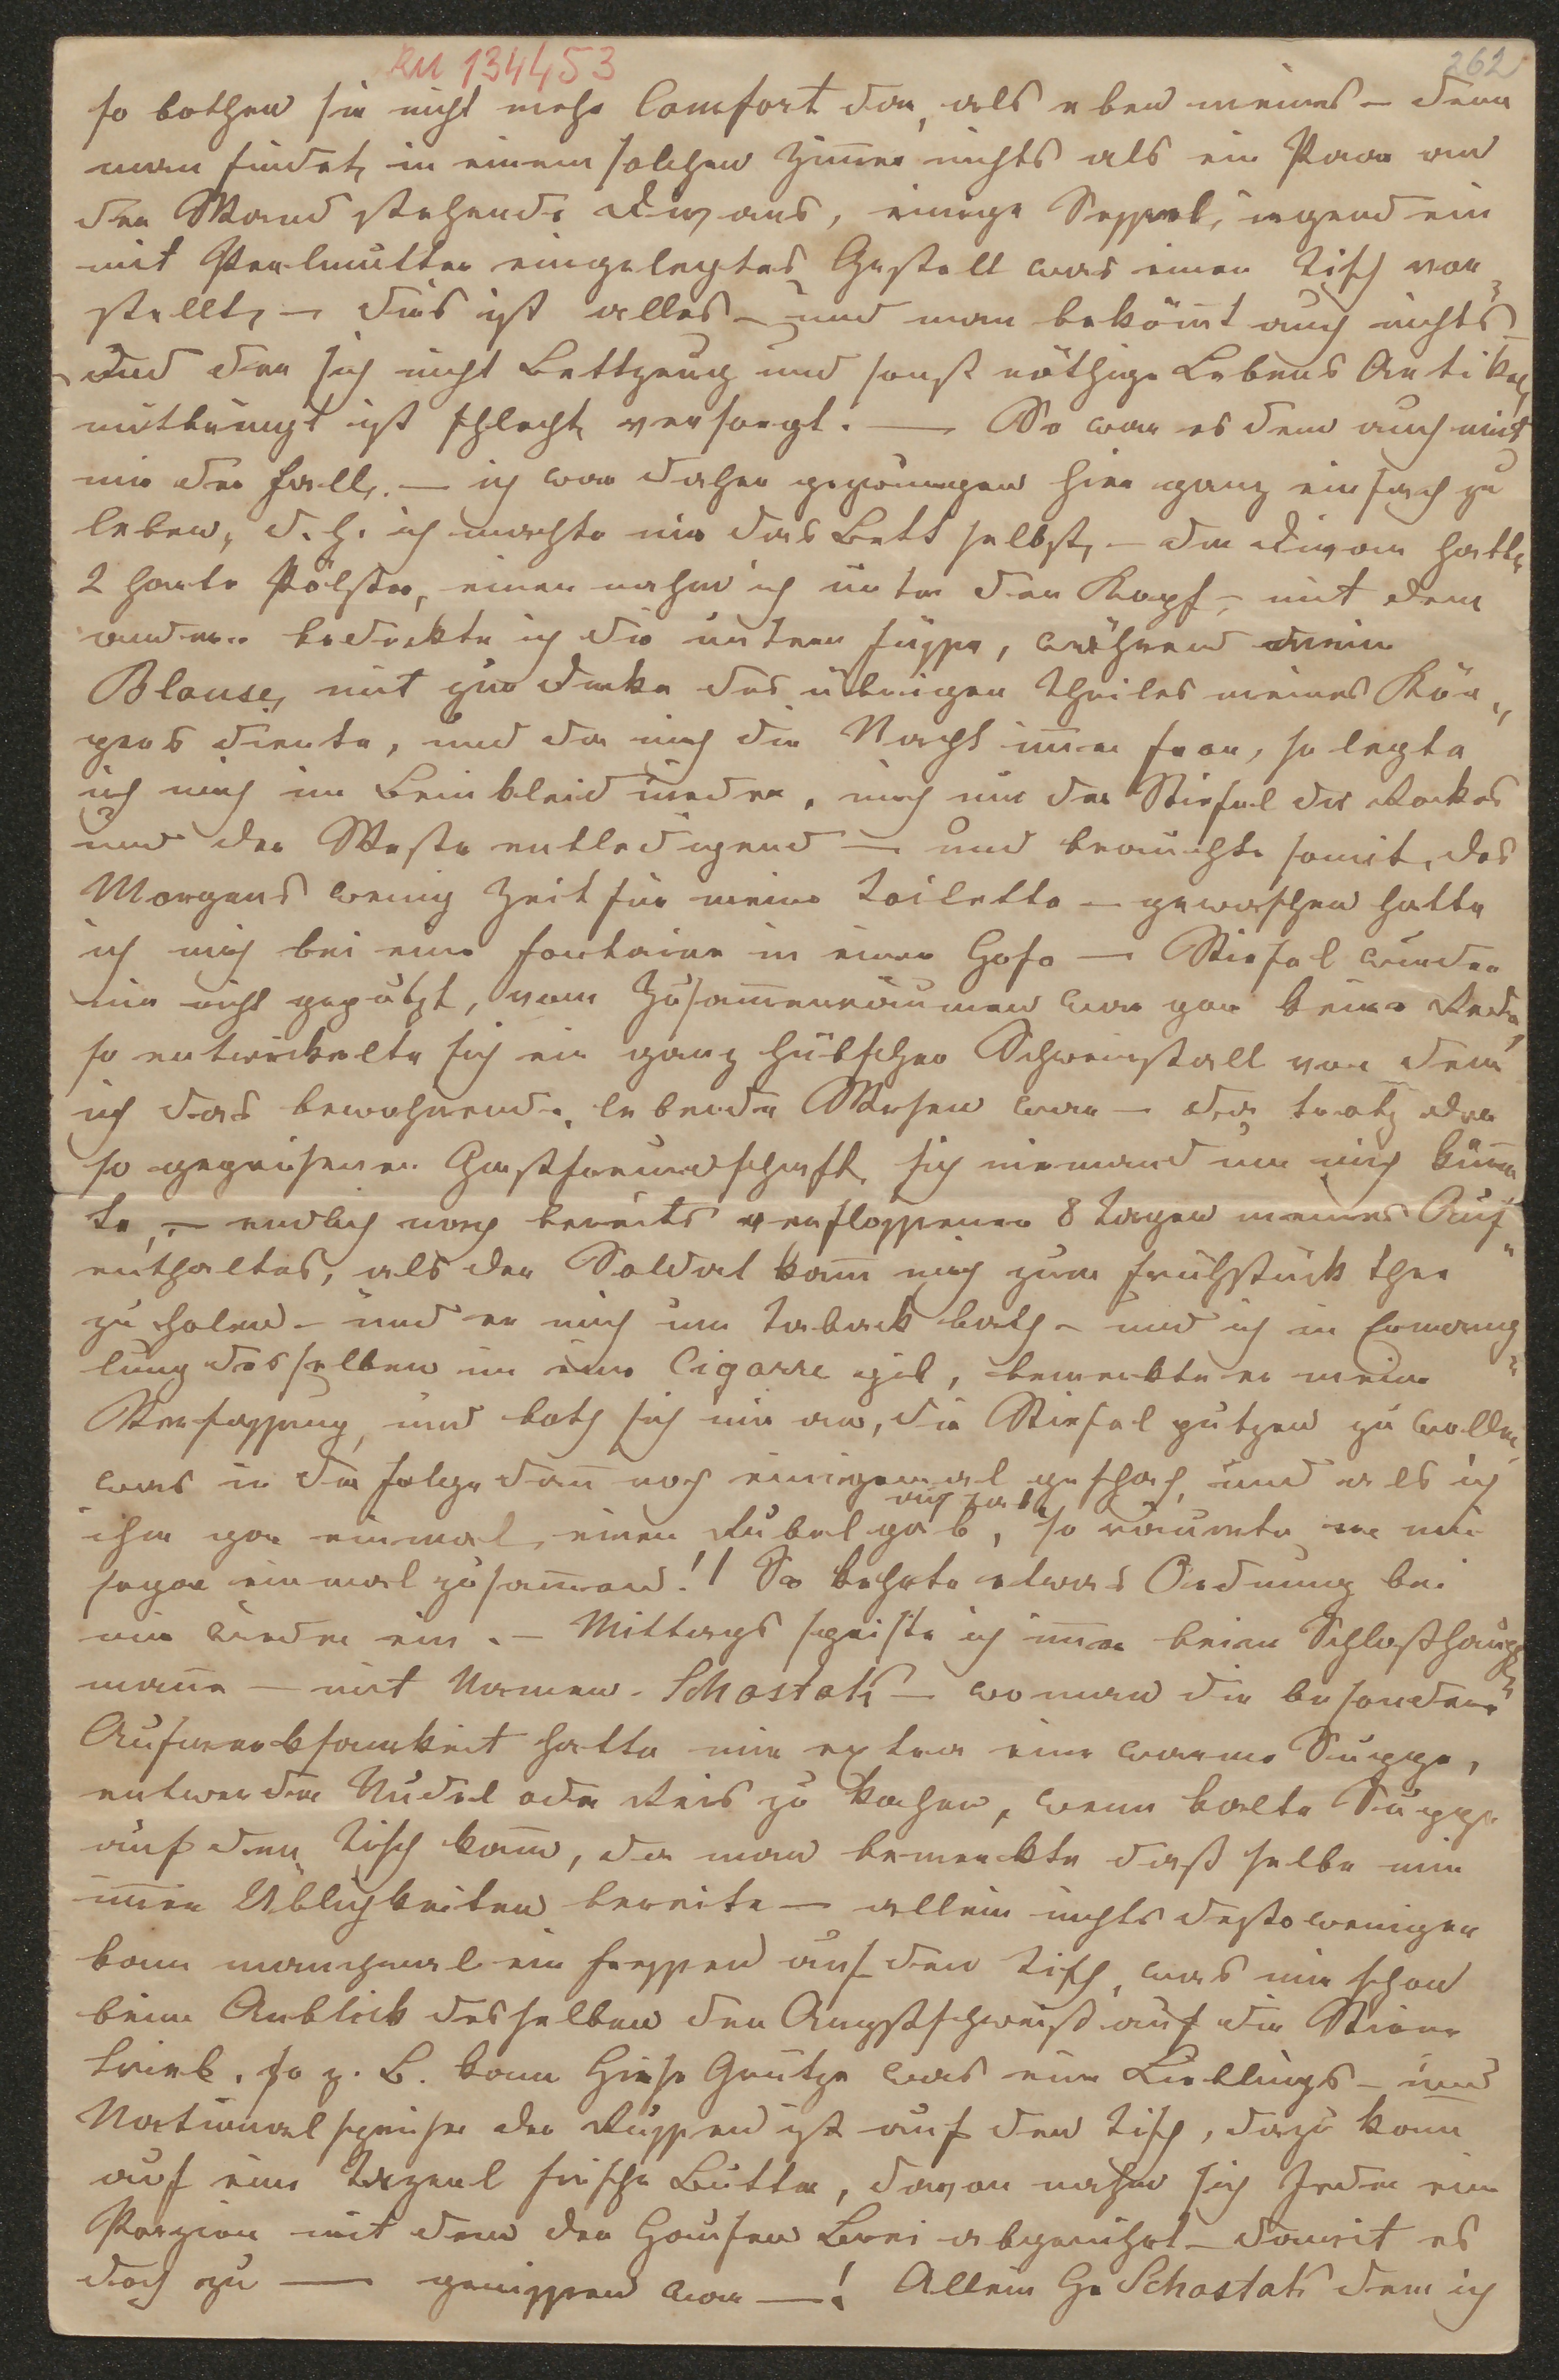 RU 134453
262
so bothen sie nicht mehr Comfort dar, als eben meines – denn
man findet, in einem solchen Zimmer nichts als ein Paar an
der Wand stehende Divans, einige Seſsel, irgend ein
mit Perlmutter eingelegtes Gestell was einen Tisch vor„
stellt, – dies ist alles – und man bekömt auch nichts –
und der sich nicht Bettzeug und sonst nöthige Lebens Artikel,
mitbringt ist schlecht versorgt. — So war es denn auch mit
mir der Fall, – ich war daher gezwungen hier ganz einfach zu
leben, d. h. ich machte mir das Bett selbst, – der Divan hatte
2 harte Pölster, einen nahm ich unter den Kopf – mit dem
andern bedeckte ich die untern Füſse, während meine
Blouse, mit zur Decke des übrigen Theiles meines Kör„
pers diente, und da mich die Nacht im̅er fror, so legte
ich mich im Beinkleid nieder, mich nur der Stiefel des Rockes
und der Weste entledigend — und brauchte somit, des
Morgens wenig Zeit für meine Toilette – gewaschen hatte
ich mich bei einer Fontaine in einem Hofe — Stiefel wurden
mir nicht geputzt, vom Zusam̅enräumen war gar keine Rede,
so entwickelte sich ein ganz hübscher Schweinstall von dem
ich das bewohnende, lebende Wesen war – da, trotz der
so gepriesenen Gastfreundschaft, sich niemand um mich küm̅er
te, – endlich nach bereits verfloſsenen 8 Tagen meines Auf„
enthaltes, als der Soldat kam̅ mich zum Frühstück Thee
zu holen – und er mich um Taback bath – und ich in Ermang„
lung desselben im eine Cigarre gib, bemerkte er meine
Verfaſsung, und both sich mir an, die Stiefel putzen zu wollen,
was in der Folge dan̅ noch einigemal geschah, und als ich
ihm gar einmal, einen Rubel gab, so räumte er mir
sogar einmal zusam̅en!! So kehrte etwas Ordnung bei
mir wieder ein. – Mittags speiste ich im̅er beim Schloßhaupt„
mann — mit Namen Schostak – wo man die besondere
Aufmerksamkeit hatte mir extra eine warme Suppe,
entweder Nudel oder Reis zu kochen, wenn kalte Suppe
auf den Tisch kam̅, da man bemerkte daß selbe mir
im̅er Üblichkeiten bereite — allein nichts desto weniger
kam manchmal ein Freſsen auf den Tisch, was mir schon
beim Anblick desselben den Angstschweiß auf die Stirne
trieb, so z. B. kam Hirse Grütze was eine Lieblings – und
Nationalspeise der Ruſsen ist auf den Tisch, dazu kam
auf eine Tazerl frische Butter, davon nahm sich Jeder eine
Porzion mit dem der Haufen Brei abgerührt – damit es
doch zu — genieſsen war —! Allein Hr Schostak dem ich